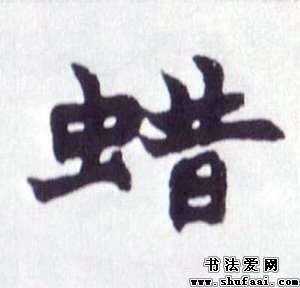 蜡
书法爱网
www.shufaai.com